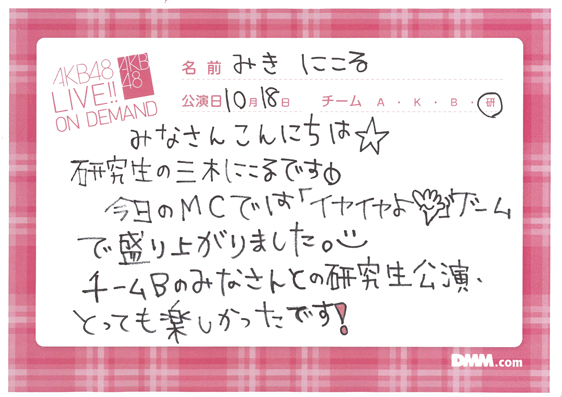 AKB48
LIVE!!
ON DEMAND
AKB
48
名前 みき にこる
公演日 10月18日 チーム A・K・B・研
みなさんこんにちは☆
研究生の三木にこるです
今日のMCでは「イヤイヤよ ゲーム
で盛り上がりました。
チームBのみなさんとの研究生公演、
とっても楽しかったです!
DMM.com